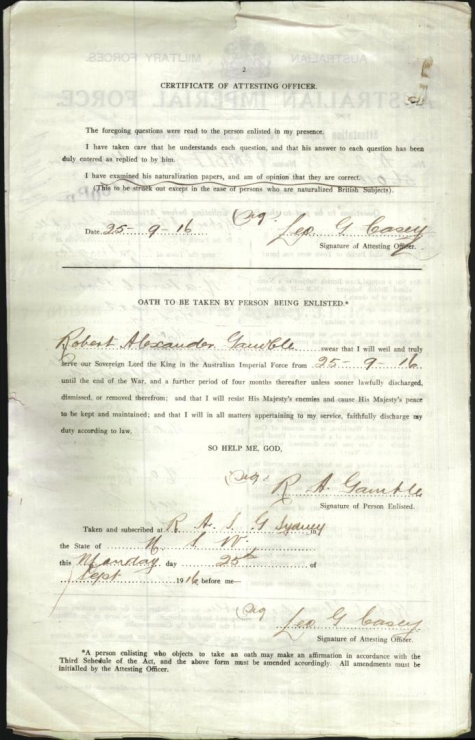 2
CERTIFICATE OF ATTESTING OFFICER.
The foregoing questions were read to the person enlisted in my presence.
I have taken care that he understands each question, and that his answer to each question has been
duly entered as replied to by him.
I have examined his naturalization papers, and am of opinion that they are correct.
(This to be struck out except in the case of persons who are naturalized British Subjects).
(Sig.
Date 25-9-16 Leo. G Casey
Signature of Attesting Officer.
OATH TO BE TAKEN BY PERSON BEING ENLISTED.*
Robert Alexander Gamble swear that I will well and truly
serve our Sovereign Lord the King in the Australian Imperial Force from 25-9-16
until the end of the War, and a further period of four months thereafter unless sooner lawfully discharged,
dismissed, or removed therefrom; and that I will resist His Majesty's enemies and cause His Majesty's peace
to be kept and maintained; and that I will in all matters appertaining to my service, faithfully discharge my
duty according to law.
SO HELP ME, GOD,
(Sig. R A. Gamble
Signature of Person Enlisted.
Taken and subscribed at R. A. S. G Sydney in
the State of N S W.
this Monday day 25th of
Sept 1916 before me—
(Sig Leo G Casey
Signature of Attesting Officer.
*A person enlisting who objects to taking an oath may make an affirmation in accordance with the
Third Schedule of the Act, and the above form must be amended accordingly. All amendments must be
initialled by the Attesting Officer.